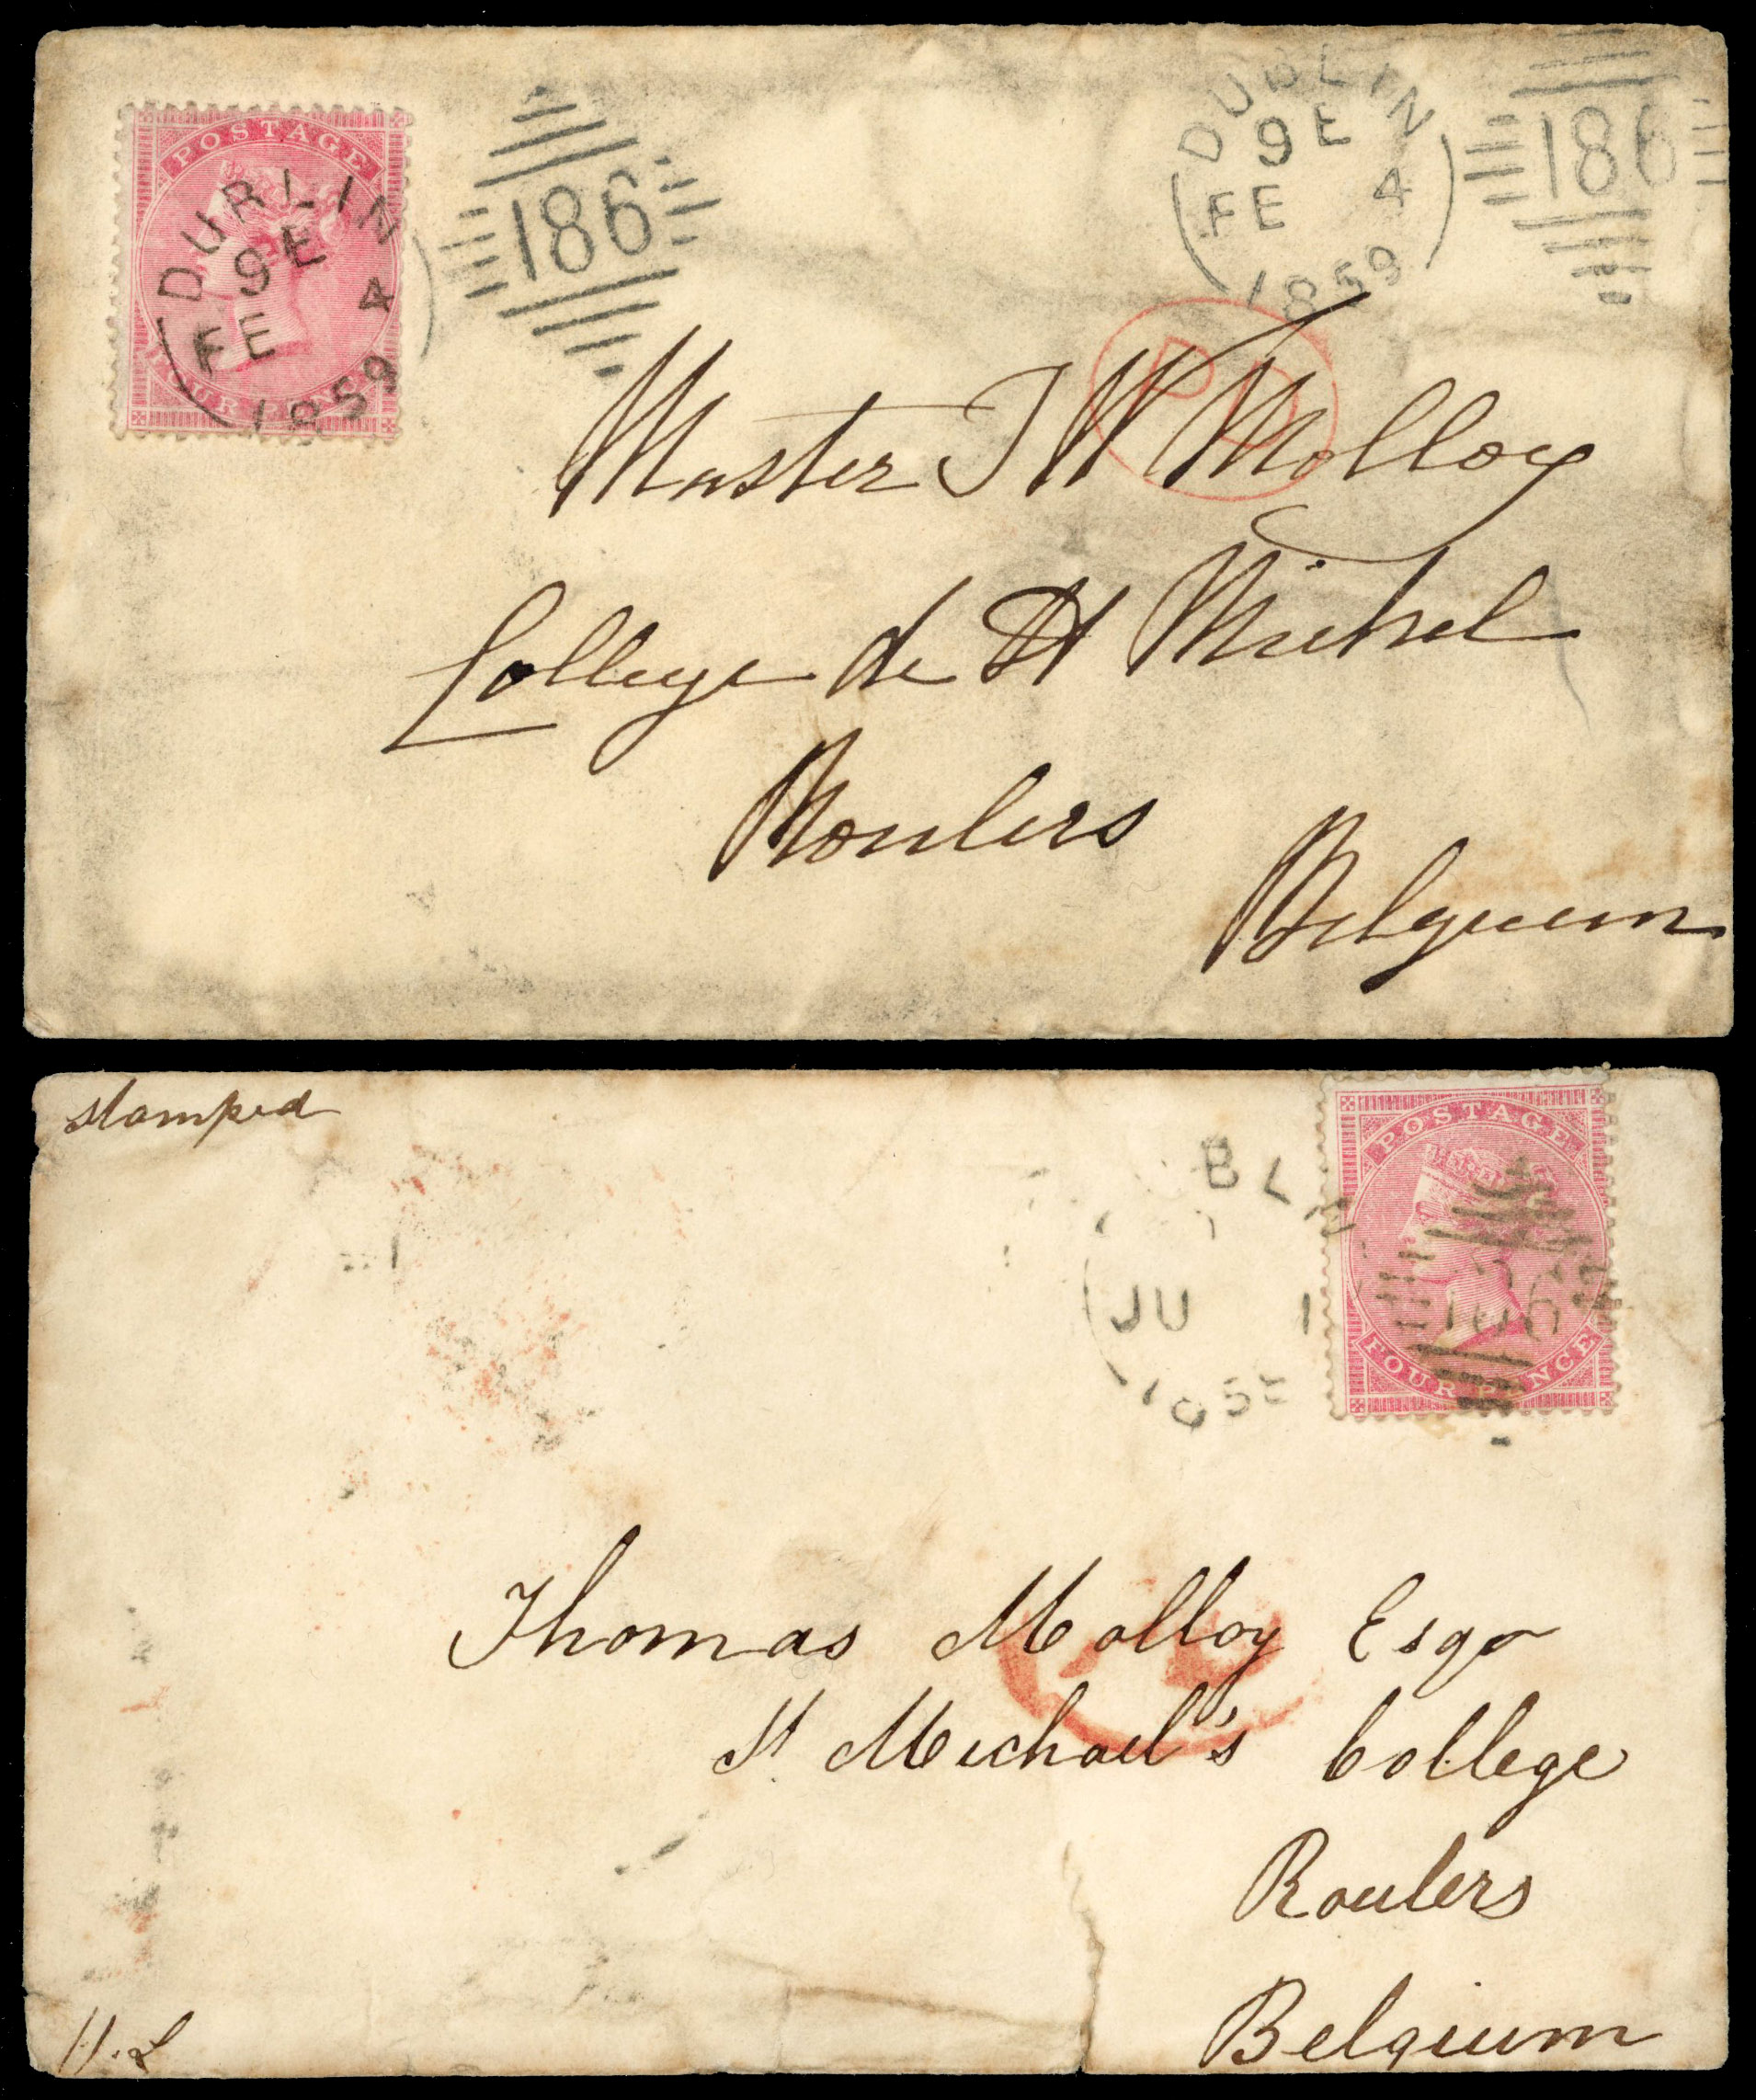 POSTAGE
FOUR PENCE
DUBLIN
9E
FE 4
1859
186
DUBLIN
9E
FE 4
1859
186
PD
Master T W Molloy
College de St Michel
Roulers
Belguem
stamped
BLIN
JU 1
POSTAGE
FOUR PENCE
186
Thomas Molloy Esqr
St Michael's College
Roulers
Belgium